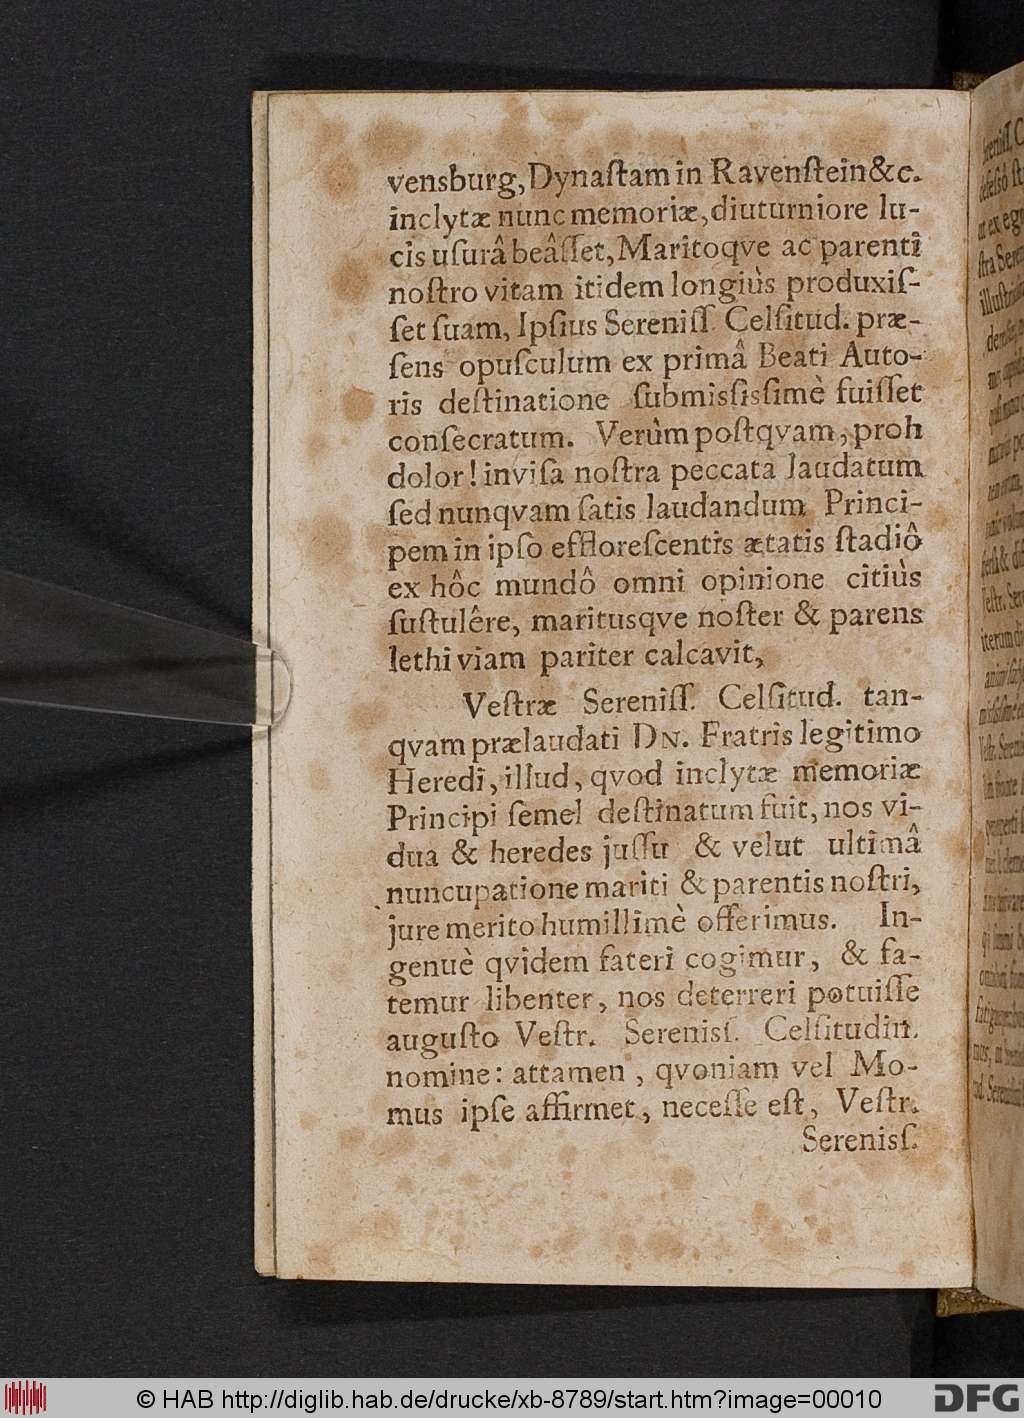 vensburg, Dynaſtam in Ravenſtein &c.
inclytæ nunc memoriæ, diuturniore lu-
cis uſurâ beâſſet, Maritoqve ac parenti
noſtro vitam itidem longiùs produxiſ-
ſet ſuam, Ipſius Sereniſſ. Celſitud. præ-
ſens opuſculum ex primâ Beati Auto-
ris deſtinatione ſubmiſsiſsimè fuiſſet
conſecratum. Verùm poſtqvam, proh
dolor! inviſa noſtra peccata laudatum
ſed nunqvam ſatis laudandum Princi-
pem in ipſo effloreſcentis ætatis ſtadiô
ex hôc mundô omni opinione citiùs
ſuſtulêre, maritusqve noſter & parens
lethi viam pariter calcavit,
Veſtræ Sereniſſ. Celſitud. tan-
qvam prælaudati DN. Fratris legitimo
Heredi, illud, qvod inclytæ memoriæ
Principi ſemel deſtinatum fuit, nos vi-
dua & heredes juſſu & velut ultimâ
nuncupatione mariti & parentis noſtri,
jure merito humillimè offerimus. In-
genuè qvidem fateri cogimur, & fa-
temur libenter, nos deterreri potuiſſe
auguſto Veſtr. Serenisſ. Celſitudin.
nomine: attamen, qvoniam vel Mo-
mus ipſe affirmet, neceſſe eſt, Veſtr.
Serenisſ.
© HAB http://diglib.hab.de/drucke/xb-8789/start.htm?image=00010
DFG